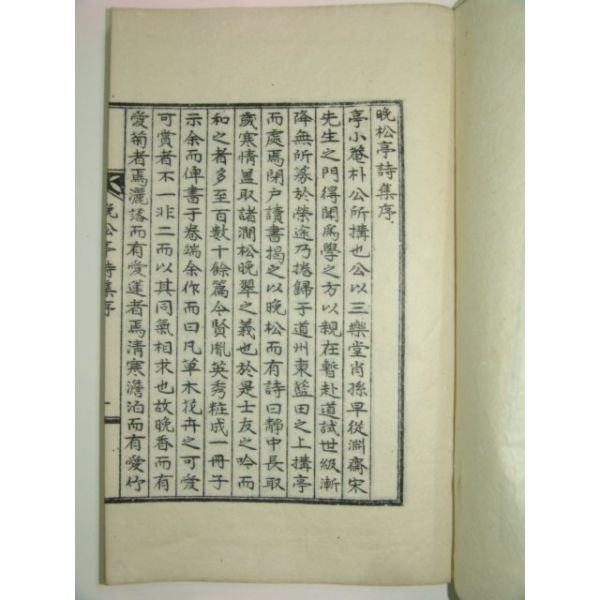 晩松亭詩集序
亭小菴朴公所搆也公以三樂堂肖孫早從淵齋宋
先生之門得聞爲學之方以親在暫赴道試世級漸
降無所蒙於榮途乃捲歸于道州東藍田之上搆亭
而處焉閉户讀書揭之以晩松而有詩曰靜中長取
歲寒情盖取諸澗松晩翠之義也於是士友之吟而
和之者多至百數十餘篇今賢胤英秀粧成一冊子
示余而俾書于卷端余作而曰凡草木花卉之可愛
可賞者不一非二而以其同氣相求也故晩香而有
愛菊者焉灑落而有愛蓮者焉清寒澹泊而有愛竹
晩松亭詩集序
一